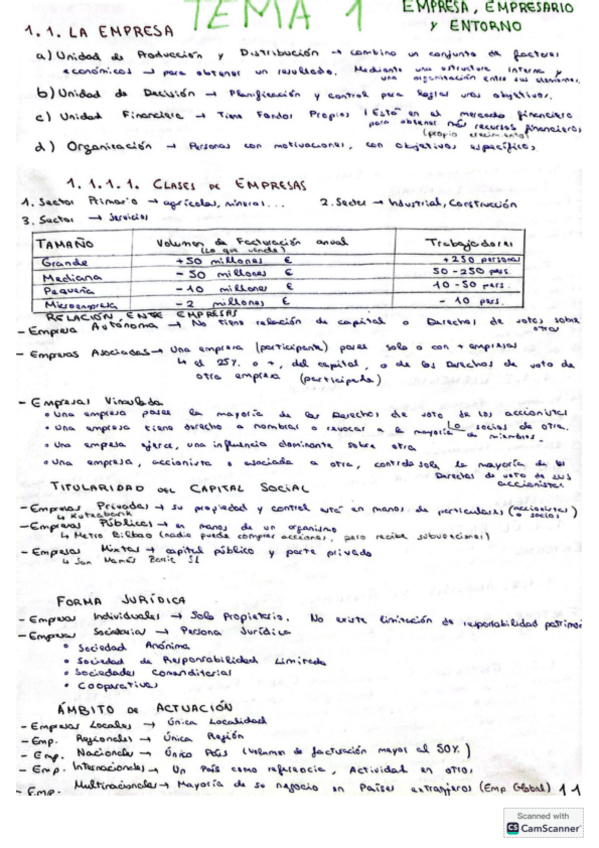 TEMA 1
EMPRESA, EMPRESARIO
Y ENTORNO
1.1. LA EMPRESA
a) Unidad de Producción y Distribución → combina un conjunto de factores
económicos → para obtener un resultado. Mediante una estructura interna y
una organización entre sus elementos.
b) Unidad de Decisión → Planificación y control para lograr unos objetivos.
c) Unidad Financiera → Tiene Fondos Propios (Está en el mercado financiero
para obtener más recursos financieros
(propio crecimiento)
d) Organización → Personas con motivaciones, con objetivos específicos
1.1.1.1. CLASES DE EMPRESAS
1. Sector Primario → agrícolas, mineros... 2. Sector → Industrial, Construcción
3. Sector → Servicios
TAMAÑO Volumen de Facturación anual Trabajadores
(Lo que vende)
Grande +50 millones € +250 personas
Mediana - 50 millones € 50 - 250 pers.
Pequeña - 10 millones € 10 - 50 pers.
Microempresa - 2 millones € - 10 pers.
RELACIÓN ENTRE EMPRESAS
- Empresa Autónoma → No tiene relación de capital o Derechos de votos sobre
otras
- Empresas Asociadas → Una empresa (participante) posee solo o con + empresas
↳ el 25% o +, del capital, o de los Derechos de voto de
otra empresa (participada)
- Empresas Vinculada
• Una empresa posee la mayoría de los Derechos de voto de los accionistas
• Una empresa tiene derecho a nombrar o revocar a la mayoría de miembros.
↳ o socios de otra.
• Una empresa ejerce, una influencia dominante sobre otra
• Una empresa, accionista o asociada a otra, controla sola, la mayoría de los
Derechos de voto de sus
accionistas
TITULARIDAD DEL CAPITAL SOCIAL
- Empresas Privadas → su propiedad y control está en manos de particulares (accionistas)
o socios
↳ Kutxabank
- Empresas Públicas → en manos de un organismo
↳ Metro Bilbao (nadie puede comprar acciones, pero recibe subvenciones)
- Empresas Mixtas → capital público y parte privado
↳ San Mamés Barria SL
FORMA JURÍDICA
- Empresas Individuales → Solo Propietario. No existe limitación de responsabilidad patrimoni
- Empresas Societarias → Persona Jurídica
• Sociedad Anónima
• Sociedad de Responsabilidad Limitada
• Sociedades Comanditarias
• Cooperativas
ÁMBITO DE ACTUACIÓN
- Empresas Locales → Única Localidad
- Emp. Regionales → Única Región
- Emp. Nacionales → Único País (Volumen de facturación mayor al 50%)
- Emp. Internacionales → Un País como referencia, Actividad en otros.
- Emp. Multinacionales → Mayoría de su negocio en Países extranjeros (Emp Global) 11
Scanned with
CS CamScanner